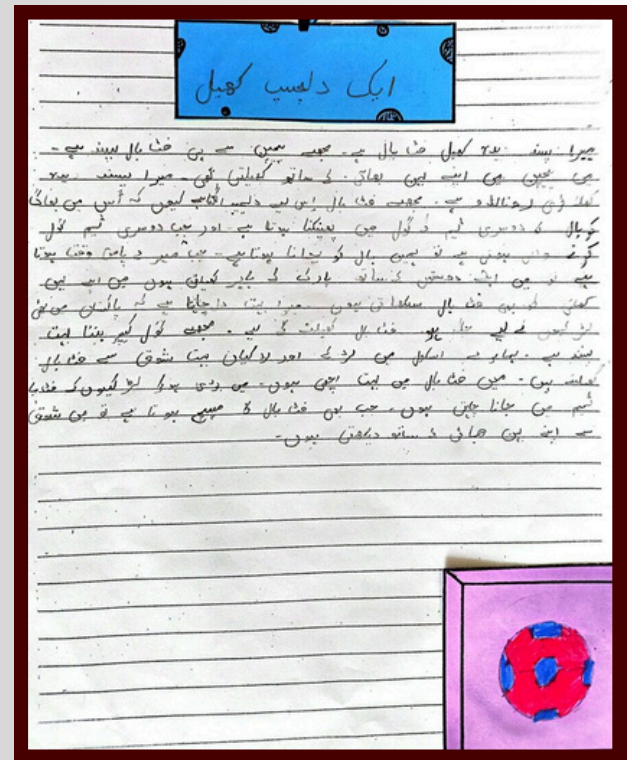 ایک دلچسپ کھیل
میرا پسند یدہ کھیل فٹ بال ہے۔ مجھے بچپن سے ہی فٹ بال پسند ہے۔
میں بچپن میں اپنے بہن بھائی کے ساتھ کھیلتی تھی۔ میرا پسند یدہ
رونالڈو ہے۔ مجھے فٹ بال اس لیے دلچسپ لگتا ہے کیوں کہ اُس میں
کو بال کو دوسری ٹیم کے گول میں پھینکنا ہوتا ہے۔ اور جب دوسری ٹیم گول
کرنے والی ہوتی ہے تو ہمیں بال کو ہوتا ہے۔ جب میرے پاس وقت ہوتا
ہے تو میں اپنے دوستوں کے ساتھ پارک کے باہر کھیلتی ہوں میں اپنے بہن
بھائی کو بھی فٹ بال سکھاتی ہوں۔ میرا بہت دل چاہتا ہے کہ پاکستان میں بھی
لڑکیوں کے لیے جگہ ہو فٹ بال کھیلنے کے لیے۔ مجھے گول کیپر بننا بہت
پسند ہے۔ ہمارے اسکول میں لڑکے اور لڑکیاں بہت شوق سے فٹ بال
کھیلتے ہیں۔ میں فٹ بال میں بہت اچھی ہوں۔ میں بڑی ہوکر لڑکیوں کے
ٹیم میں جانا چاہتی ہوں۔ جب بھی فٹ بال کا میچ ہوتا ہے تو میں شوق
سے اپنے بہن بھائی کے ساتھ دیکھتی ہوں۔